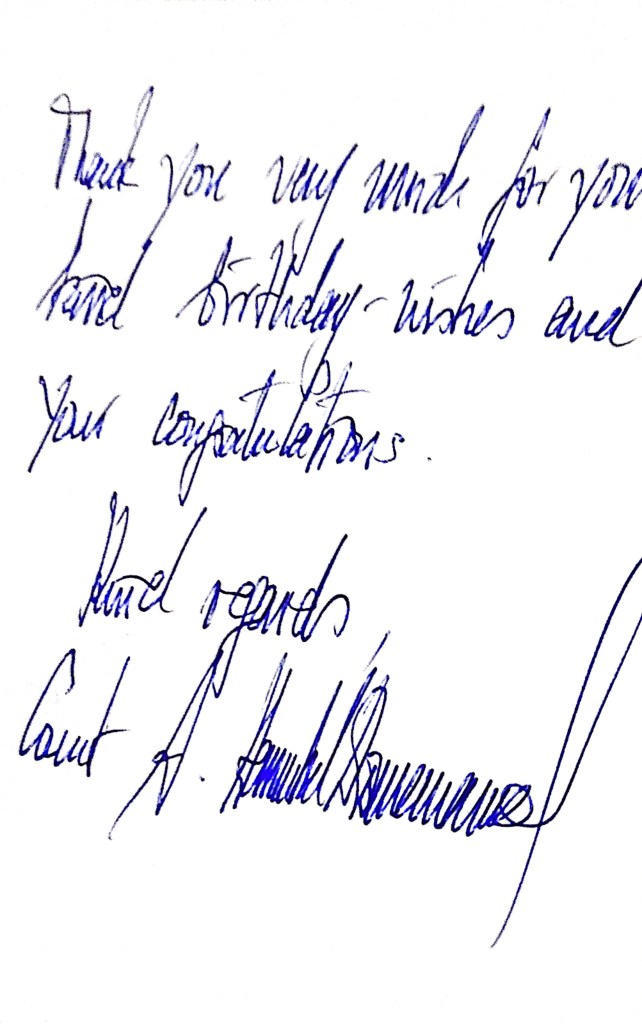 Thank you very much for your
kind birthday-wishes and
your congratulations.
Kind regards,
Count A.